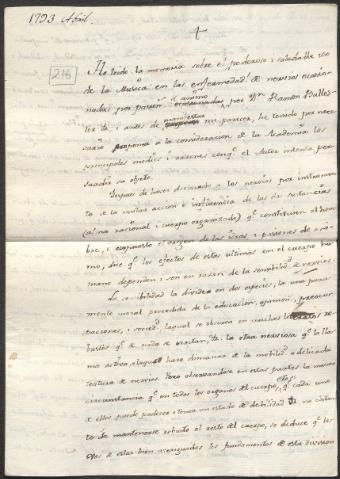 1793 Abril.
216
He leido la memoria sobre el poderoso i saludable uso
de la Musica en las enfermedad.s de nervios ocasio
nadas por pasion.s de animo por D.n Ramon Balles
ter &a, i antes de manifestar mi parecer, he tenido por nece
sario a la consideracion de la Academia las
principales medios i razones conq.e el Autor intenta per
suadir su objeto.
Despues de haver los nervios por instrumen
to de la mutua accion e influencia de las dos sustancias
(alma racional, i cuerpo organizado) q.e constituyen al hom
bre, i expuesto el origen de las ideas i pasiones de ani
mo, dice q.e los efectos de estas ultimas en el cuerpo hu
mano dependen i son en razon de la sensibilid.d de nervios.
La sensibilidad la divide en dos especies, la una pura
mente moral procedida de la educacion, opinion, preocu
paciones, i sociedad, laqual se observa en muchos
bustos q.e de nada se irritan, &a. la otra nerviosa q.e la lla
ma activa, alaqual hace dimanar de la mobilid.d, o delicada
textura de nervios. Pero observandose en estas partes la misma
circunstancia q.e en todos los organos del cuerpo, q.e cada uno
de ellos puede padecer o tener un estado de debilidad &a no obstan
te de mantenerse robusto el resto del cuerpo, se deduce q.e los
no estan bien asegurados los fundamentos de esta division